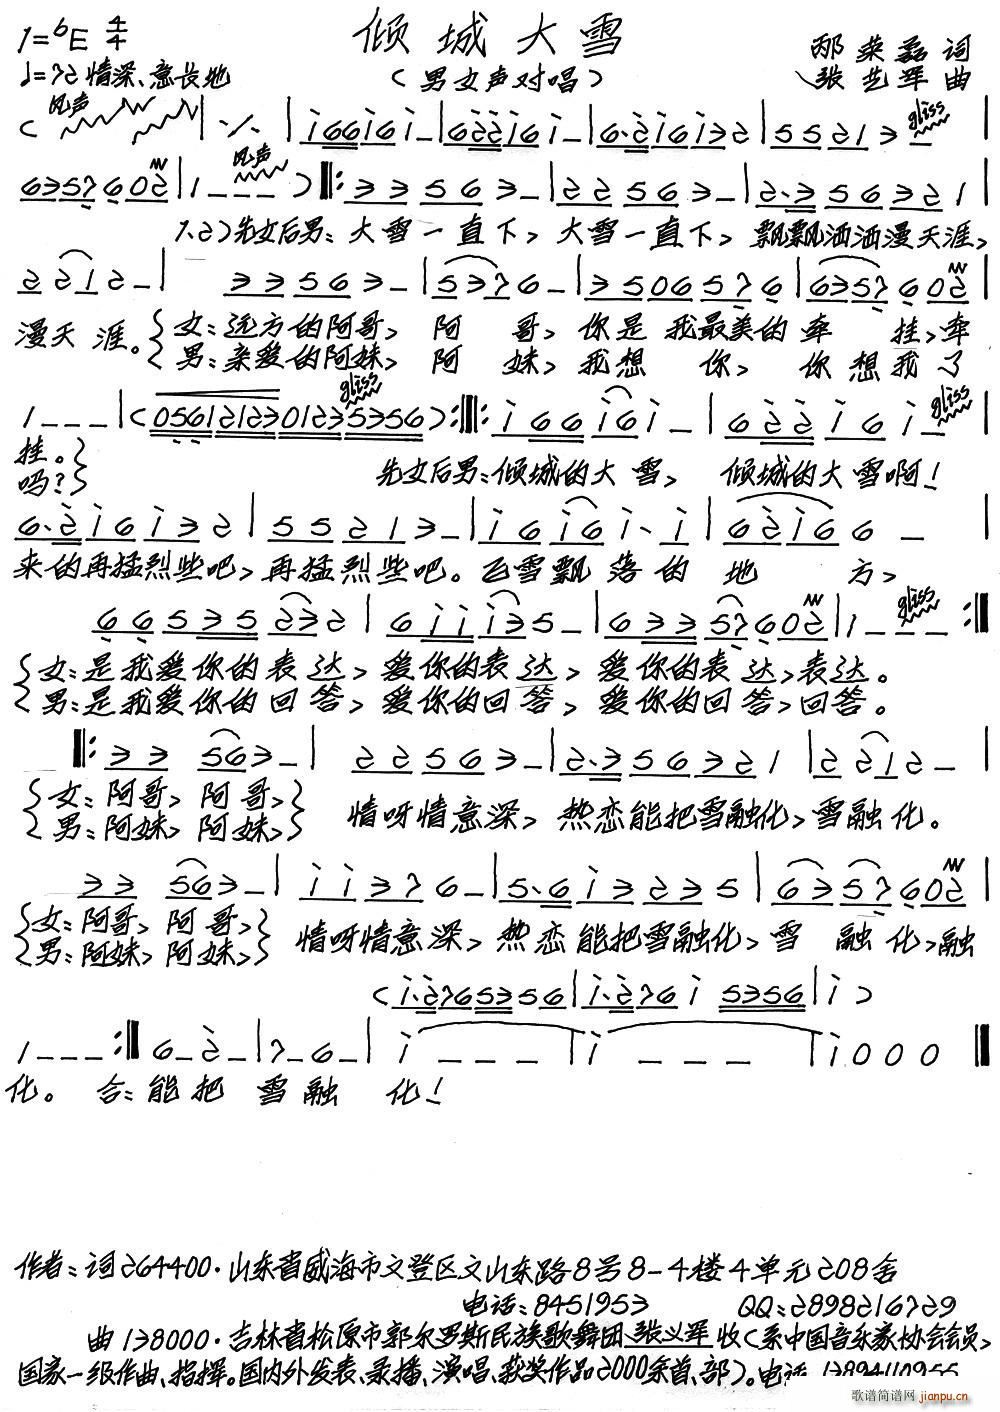 倾城大雪
1=♭E 4/4
(男女声对唱)
邢荣磊 词
♩=72 情深、意长地
张艺军 曲
风声
gliss
风声
1.2)先女后男:大雪一直下,大雪一直下,飘飘洒洒漫天涯,
漫天涯。
女:远方的阿哥,阿哥,你是我最美的牵挂,牵
男:亲爱的阿妹,阿妹,我想你,你想我了
gliss
gliss
挂。
吗?
先女后男:倾城的大雪,倾城的大雪啊!
来的再猛烈些吧,再猛烈些吧。飞雪飘落的地方,
gliss
女:是我爱你的表达,爱你的表达,爱你的表达,表达。
男:是我爱你的回答,爱你的回答,爱你的回答,回答。
女:阿哥,阿哥,
男:阿妹,阿妹,
情呀情意深,热恋能把雪融化,雪融化。
女:阿哥,阿哥,
男:阿妹,阿妹,
情呀情意深,热恋能把雪融化,雪融化,融
化。合:能把雪融化!
作者:词264400·山东省威海市文登区文山东路8号8-4楼4单元208舍
电话:8451953 QQ:2898216729
曲138000·吉林省松原市郭尔罗斯民族歌舞团张义军收(系中国音乐家协会会员,
国家一级作曲、指挥。国内外发表、录播、演唱、获奖作品2000余首、部)。电话
歌谱简谱网
jianpu.cn